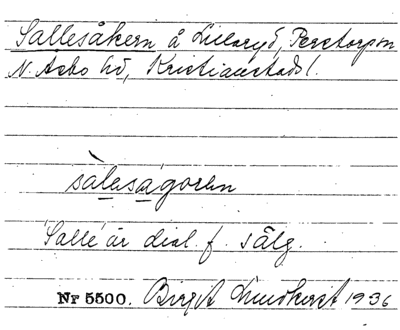 Sallesåkern å Lillaryd, Perstorp sn
N. Åsbo hd, Kristianstads l.
sàlesågoren
'Salle' är dial. f. sälg.
Nr 5500. Birgit Lundkvist 1936